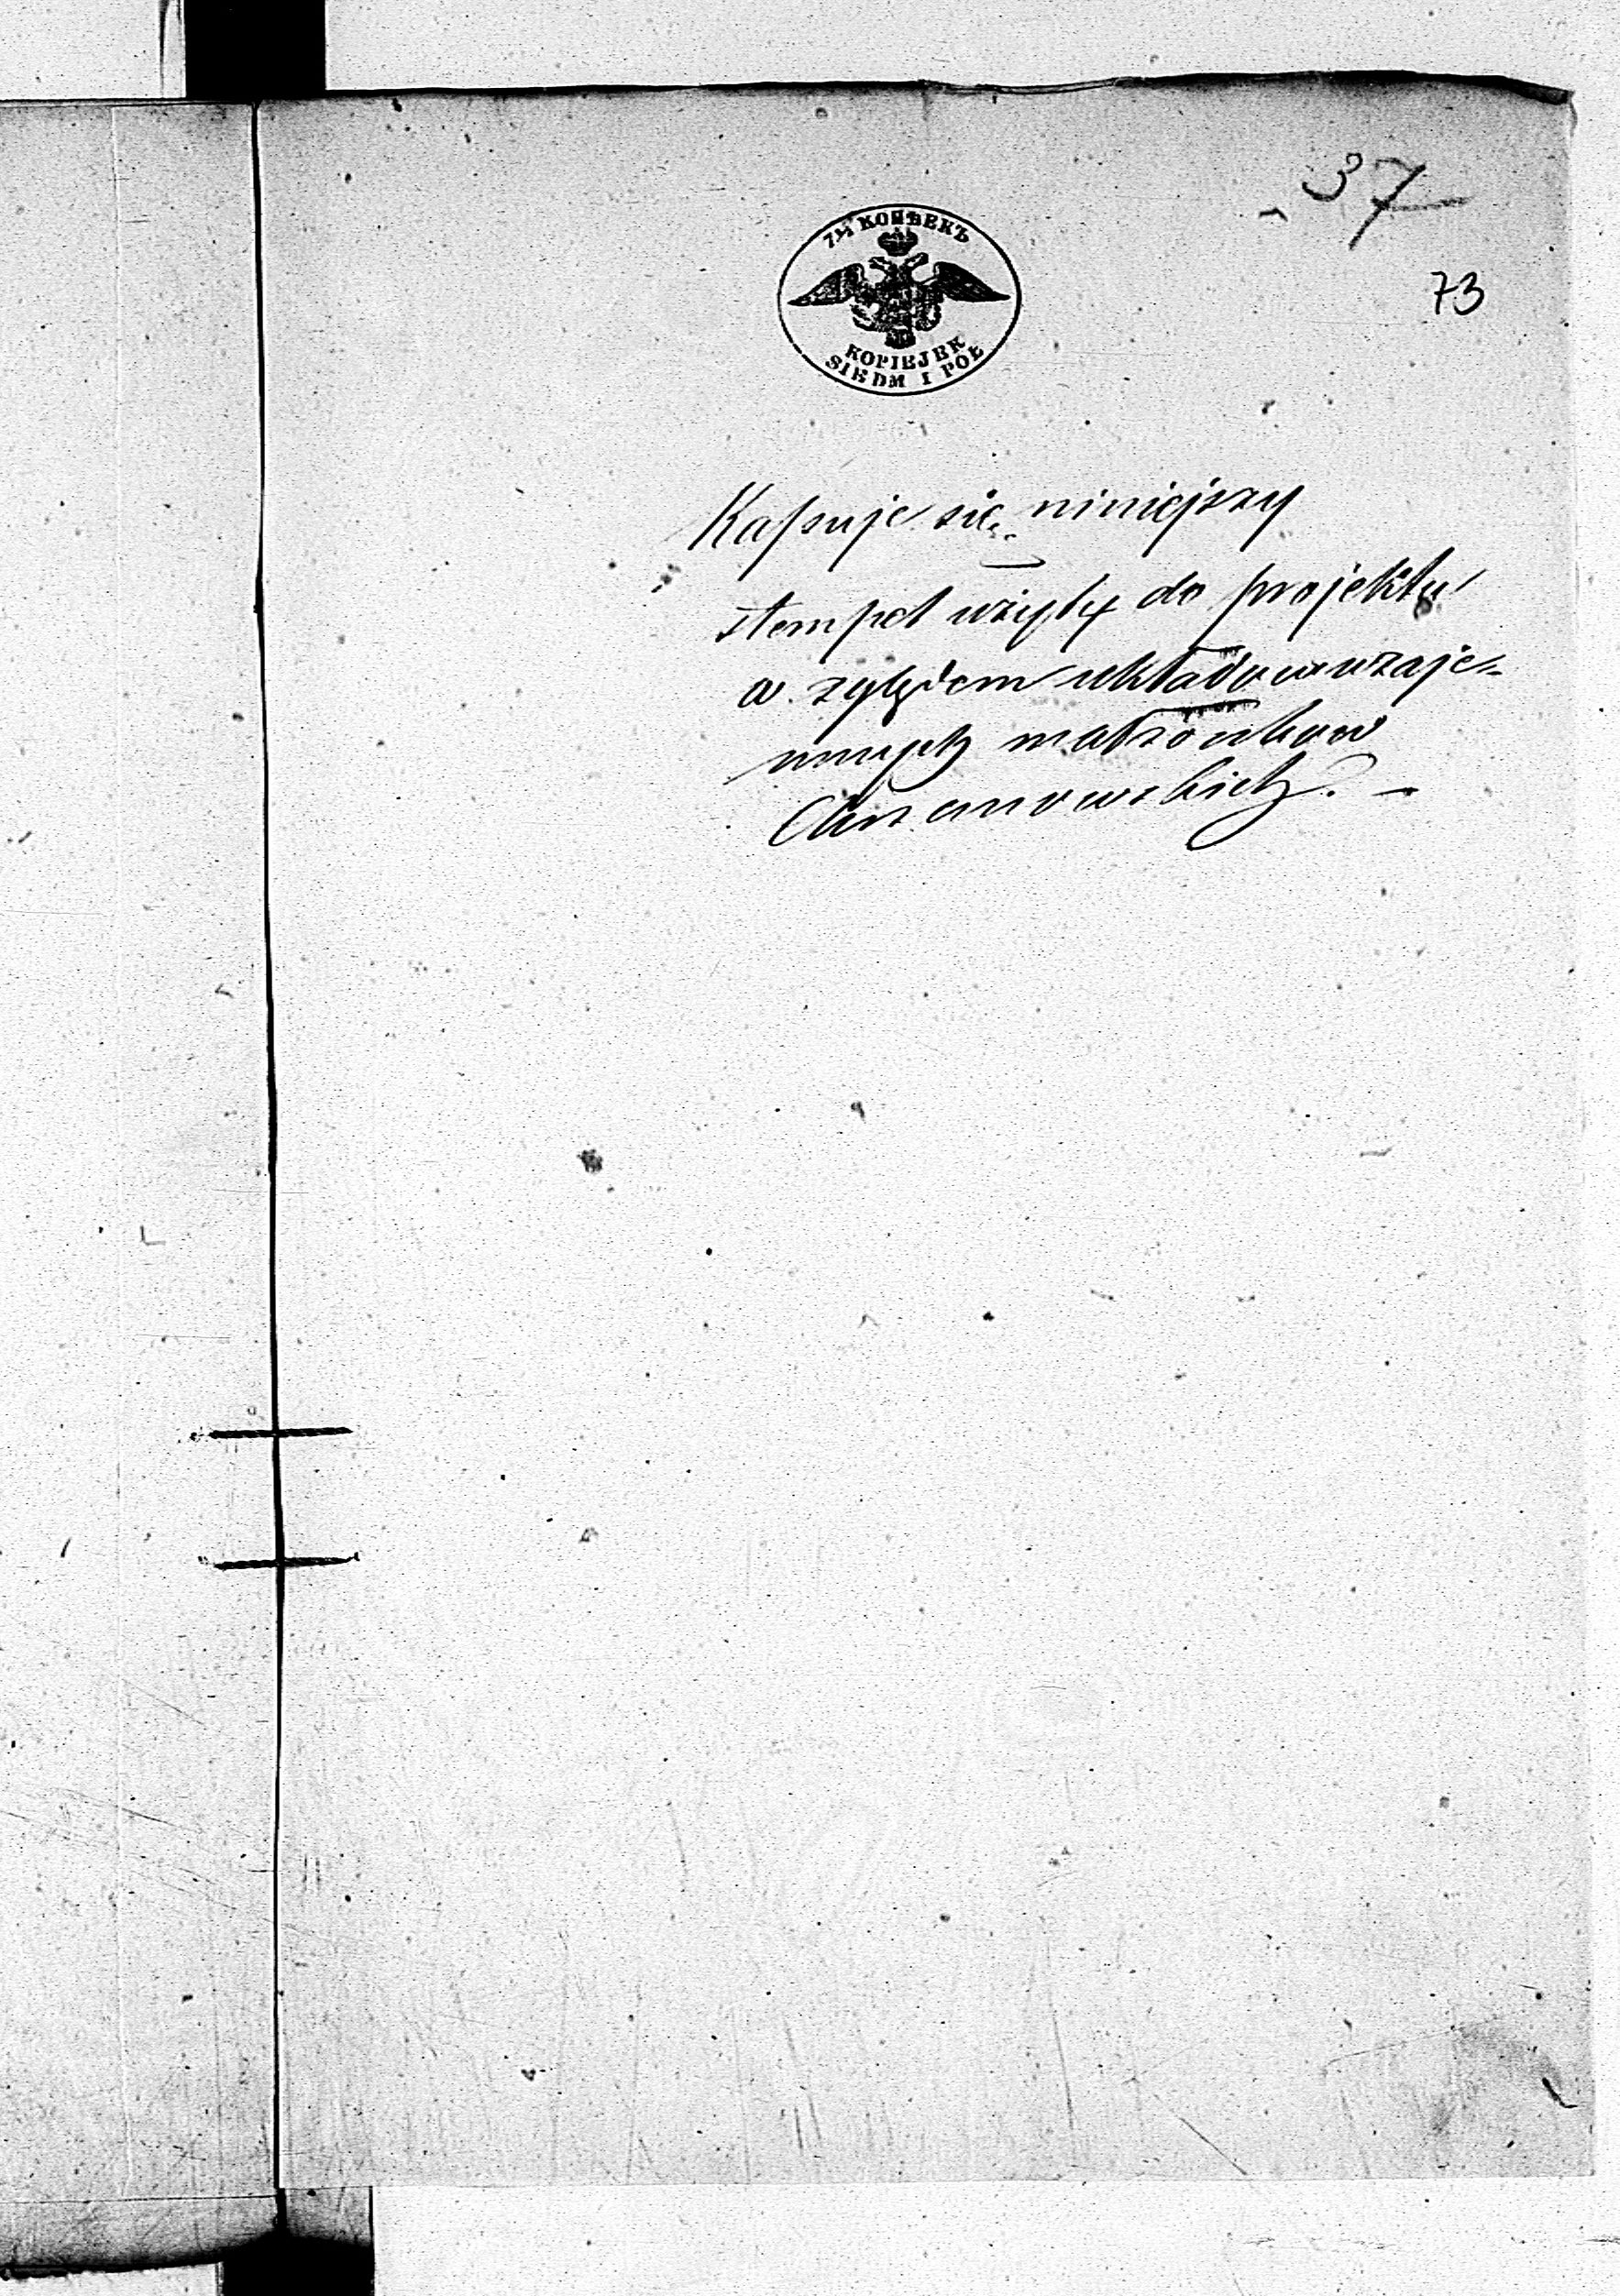 37
73
7½ КОПѢЕКЪ
KOPIEJEK
SIEDM I POŁ
Kassuje się niniejszy
stempel użyty do projektu
układów wzaje=
mnych małżonków